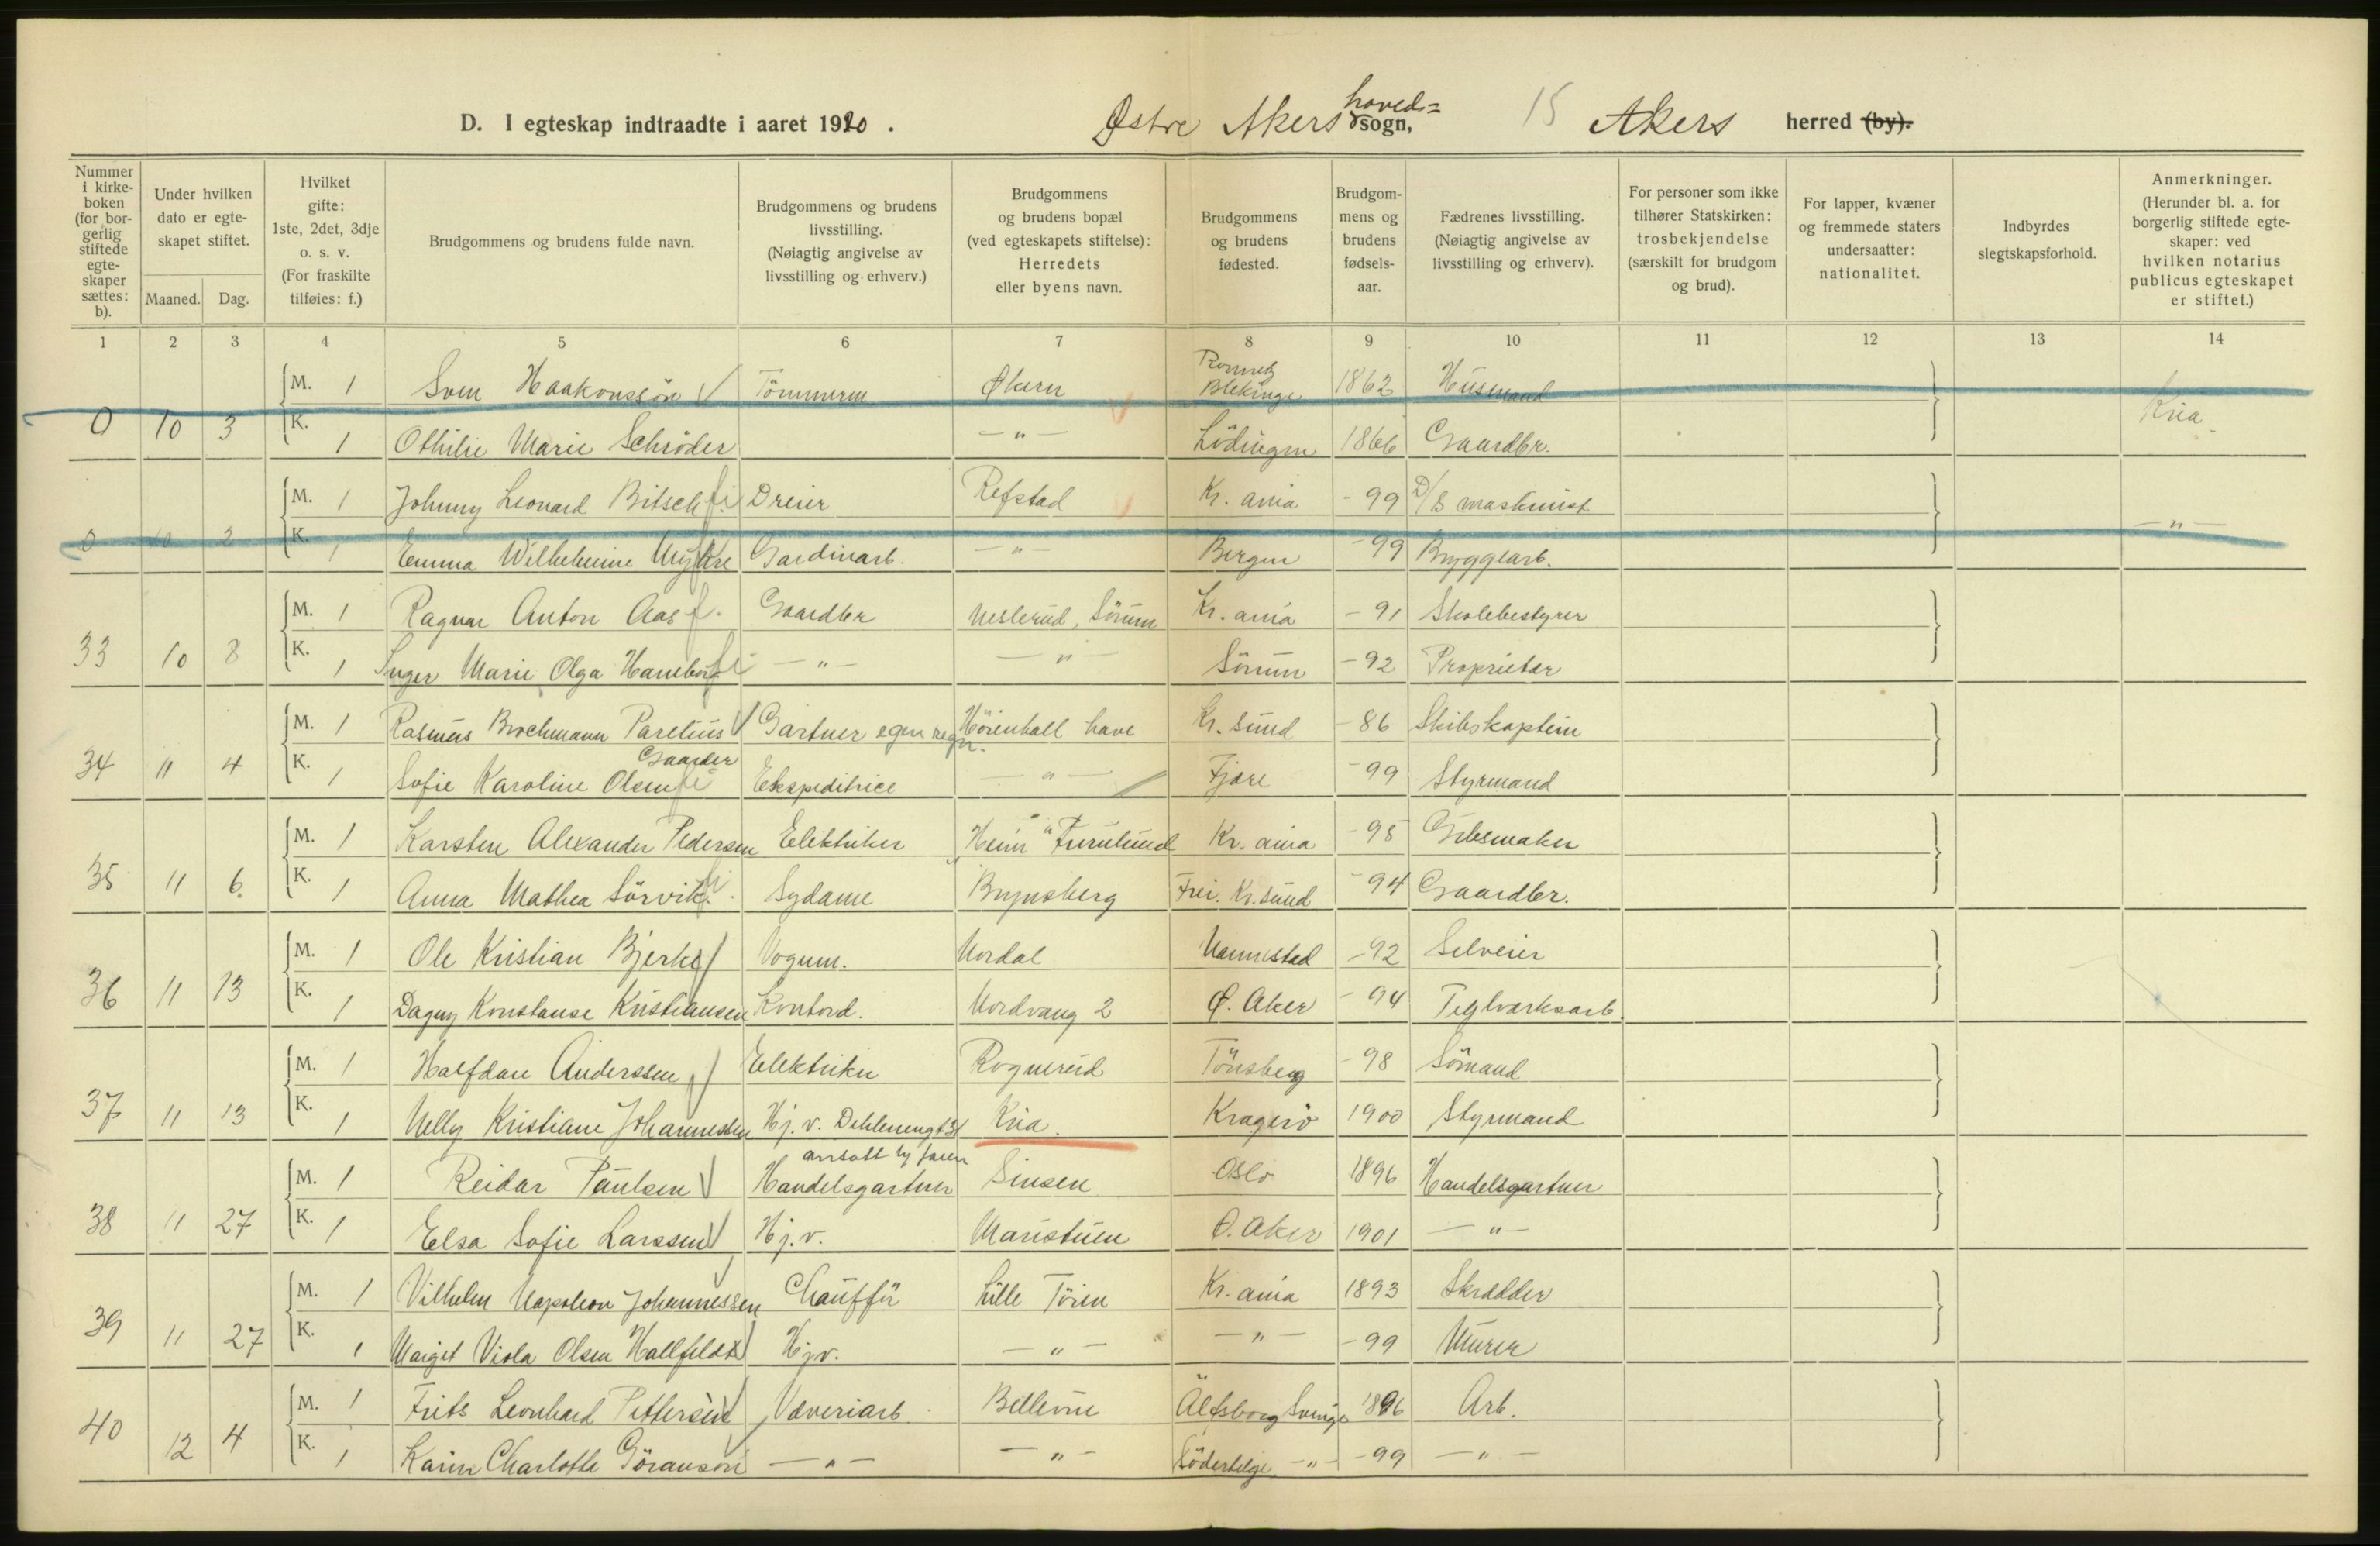 D. I egteskap indtraadte i aaret 1920. Østre Akers hoved= sogn, 15 Akers herred (by).
Nummer i kirkeboken (for borgerlig stiftede egteskaper sættes: b).
Under hvilken dato er egteskapet stiftet.
Maaned. Dag.
Hvilket gifte: 1ste, 2det, 3dje o. s. v. (For fraskilte tilføies: f.)
Brudgommens og brudens fulde navn.
Brudgommens og brudens livsstilling. (Nøiagtig angivelse av livsstilling og erhverv.)
Brudgommens og brudens bopæl (ved egteskapets stiftelse): Herredets eller byens navn.
Brudgommens og brudens fødested.
Brudgommens og brudens fødselsaar.
Fædrenes livsstilling. (Nøiagtig angivelse av livsstilling og erhverv).
For personer som ikke tilhører Statskirken: trosbekjendelse (særskilt for brudgom og brud).
For lapper, kvæner og fremmede staters undersaatter: nationalitet.
Indbyrdes slegtskapsforhold.
Anmerkninger. (Herunder bl. a. for borgerlig stiftede egteskaper: ved hvilken notarius publicus egteskapet er stiftet.)
1 2 3 4 5 6 7 8 9 10 11 12 13 14
M. 1 Sven Haakonssön Tömmerm Økern Blekinge 1862 Husmand
0 10 3 K. 1 Othilie Marie Schröder —"— Lödingen 1866 Gaardbr. Kria.
M. 1 Johnny Leonard Bitsch Dreier Refstad Kr. ania - 99 D/S maskinist
0 10 2 K. 1 Emma Wilhelmine Gardinarb. —"— Bergen - 99 Bryggearb. —"—
M. 1 Ragnar Anton Aas Gaardbr Neslerud, Sörum Kr. ania - 91 Skolebestyrer
33 10 8 K. 1 Inger Marie Olga Haneborg —"— —"— Sörum - 92 Proprietær
M. 1 Rasmus Brochmann Parelius Gartner egen regn. have Kr. sund - 86 Skibskaptein
34 11 4 K. 1 Sofie Karoline Olsen Gaarder Ekspeditrice —"— Fjære - 99 Styrmand
M. 1 Karsten Alexander Pedersen Elektriker Heim "Furulund Kr. ania - 95 Gibsmaker
35 11 6. K. 1 Anna Mathea Sörvik Sydame Brynsberg Frei. Kr. sund - 94 Gaardbr.
M. 1 Ole Kristian Bjerke Vognm. Nordal Nannestad - 92 Selveier
36 11 13 K. 1 Dagny Konstanse Kristiansen Kontord. Nordvang 2 Ø. Aker - 94 Teglverksarb.
M. 1 Halfdan Anderssen Elektriker Rognerud Tönsberg - 98 Sömand
37 11 13 K. 1 Nelly Kristiane Johannessen Hj. v. Dehlenengt 31 Kria. Kragerö 1900 Styrmand
M. 1 Reidar Paulsen Handelsgartner ansatt hj faren Sinsen Oslo 1896 Handelsgartner
38 11 27 K. 1 Elsa Sofie Larssen Hj. v. Maristuen Ø. Aker 1901 —"—
M. 1 Vilhelm Napoleon Johannessen Chaufför Lille Töien Kr. ania 1893 Skrædder
39 11 27 K. 1 Margit Viola Olsen Hallfeldt Hj.v. —"— —"— - 99 Murer
M. 1 Frits Leonhard Pettersen Væveriarb. Bellevue Älfsborg Sverige 1896 Arb.
40 12 4 K. 1 Karin Charlotte Göranson —"— —"— Södertelge —"— - 99 —"—